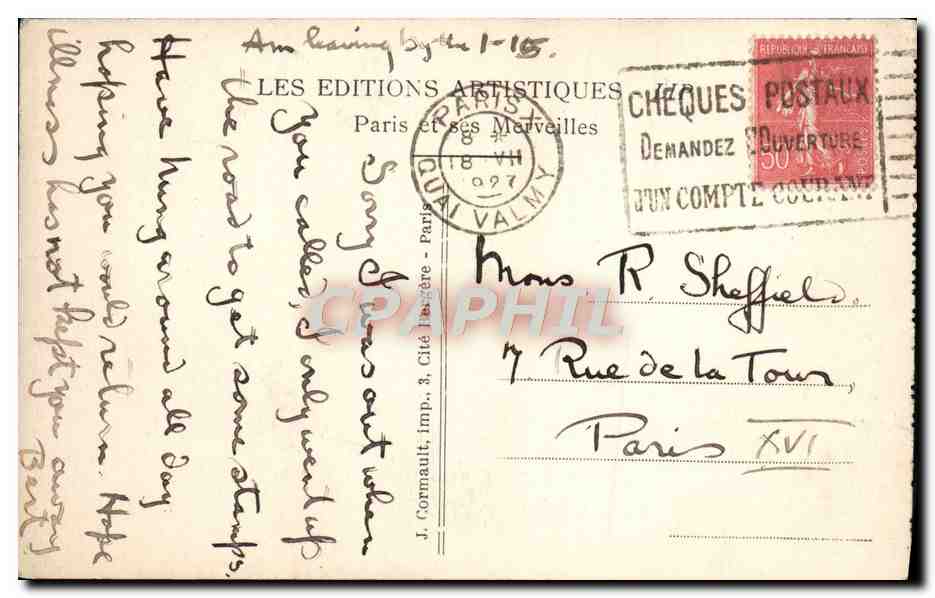 Am leaving by the 1-15.
LES EDITIONS ARTISTIQUES
Paris et ses Merveilles
PARIS X
8 *
18 VII
1927
QUAI VALMY
CHEQUES POSTAUX
DEMANDEZ L'OUVERTURE
D'UN COMPTE COURANT
REPUBLIQUE FRANÇAISE
50
Sorry I was out when
you called, I only went up
the road to get some stamps.
Have hung around all day
hoping you would return. Hope
illness has not kept you away
Bert
J. Cormault, imp., 3, Cité Bergère - Paris
Mons R. Sheffield,
7 Rue de la Tour,
Paris XVI
CPAPHIL